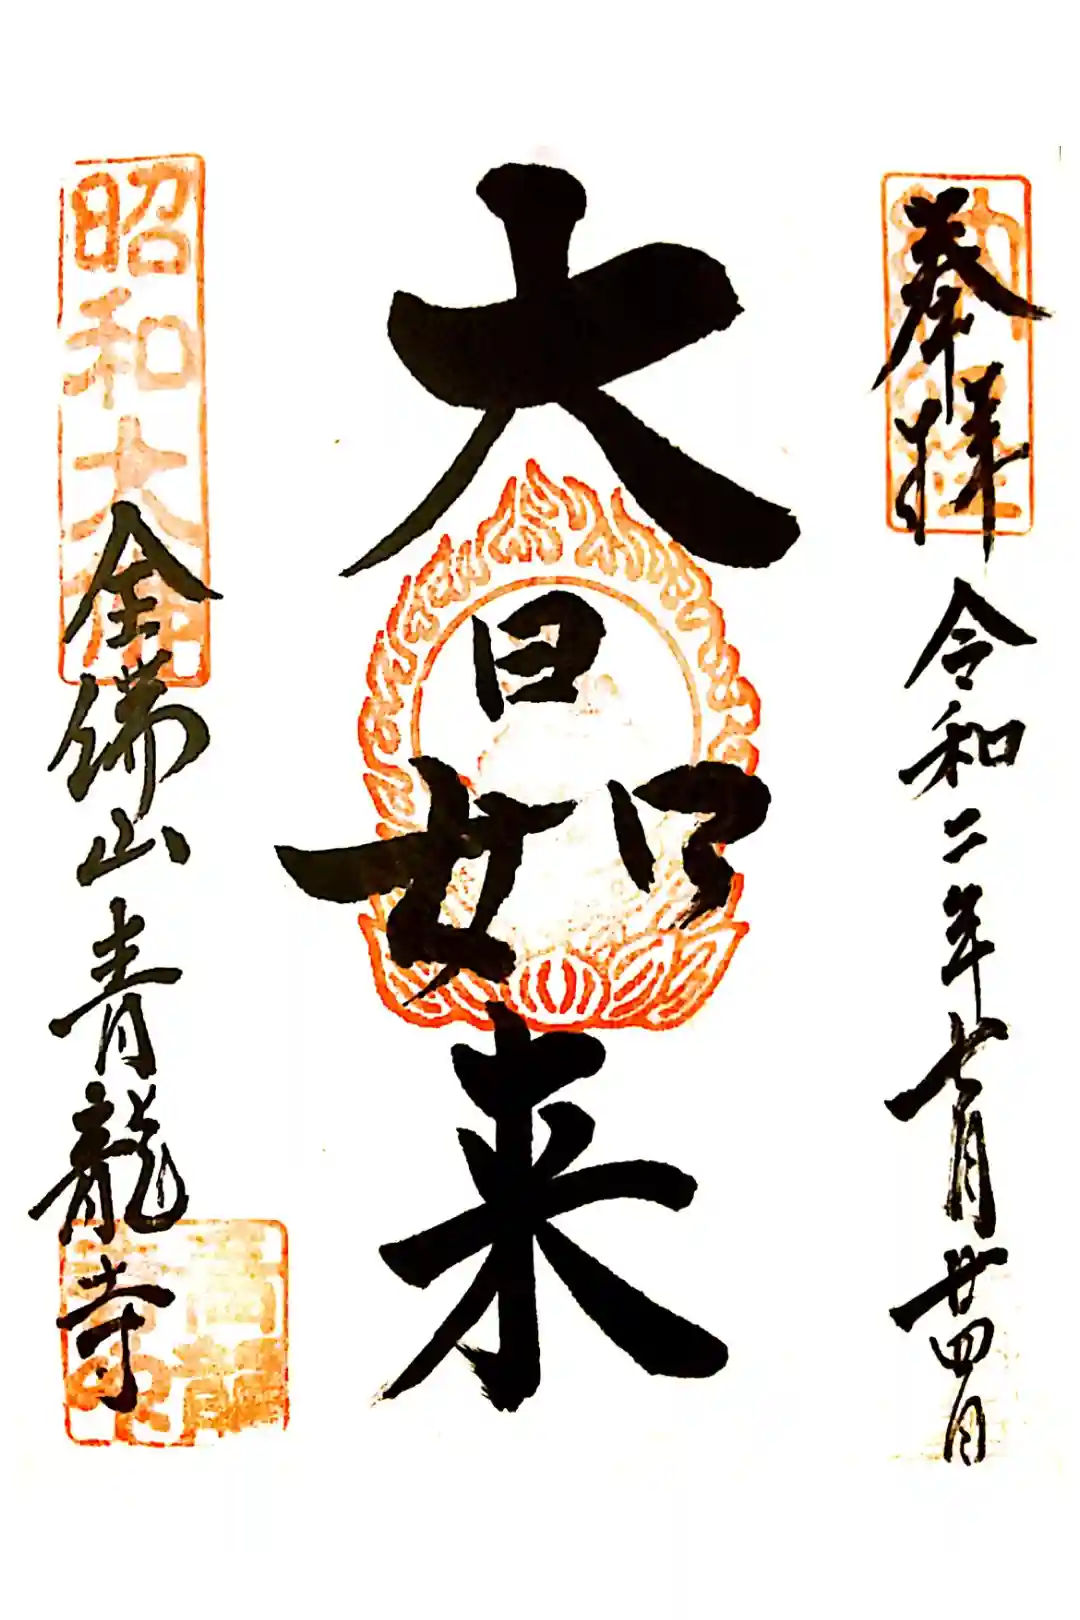 奉拝 令和二年七月廿四日
大日如来
昭和大佛
全佛山青龍寺